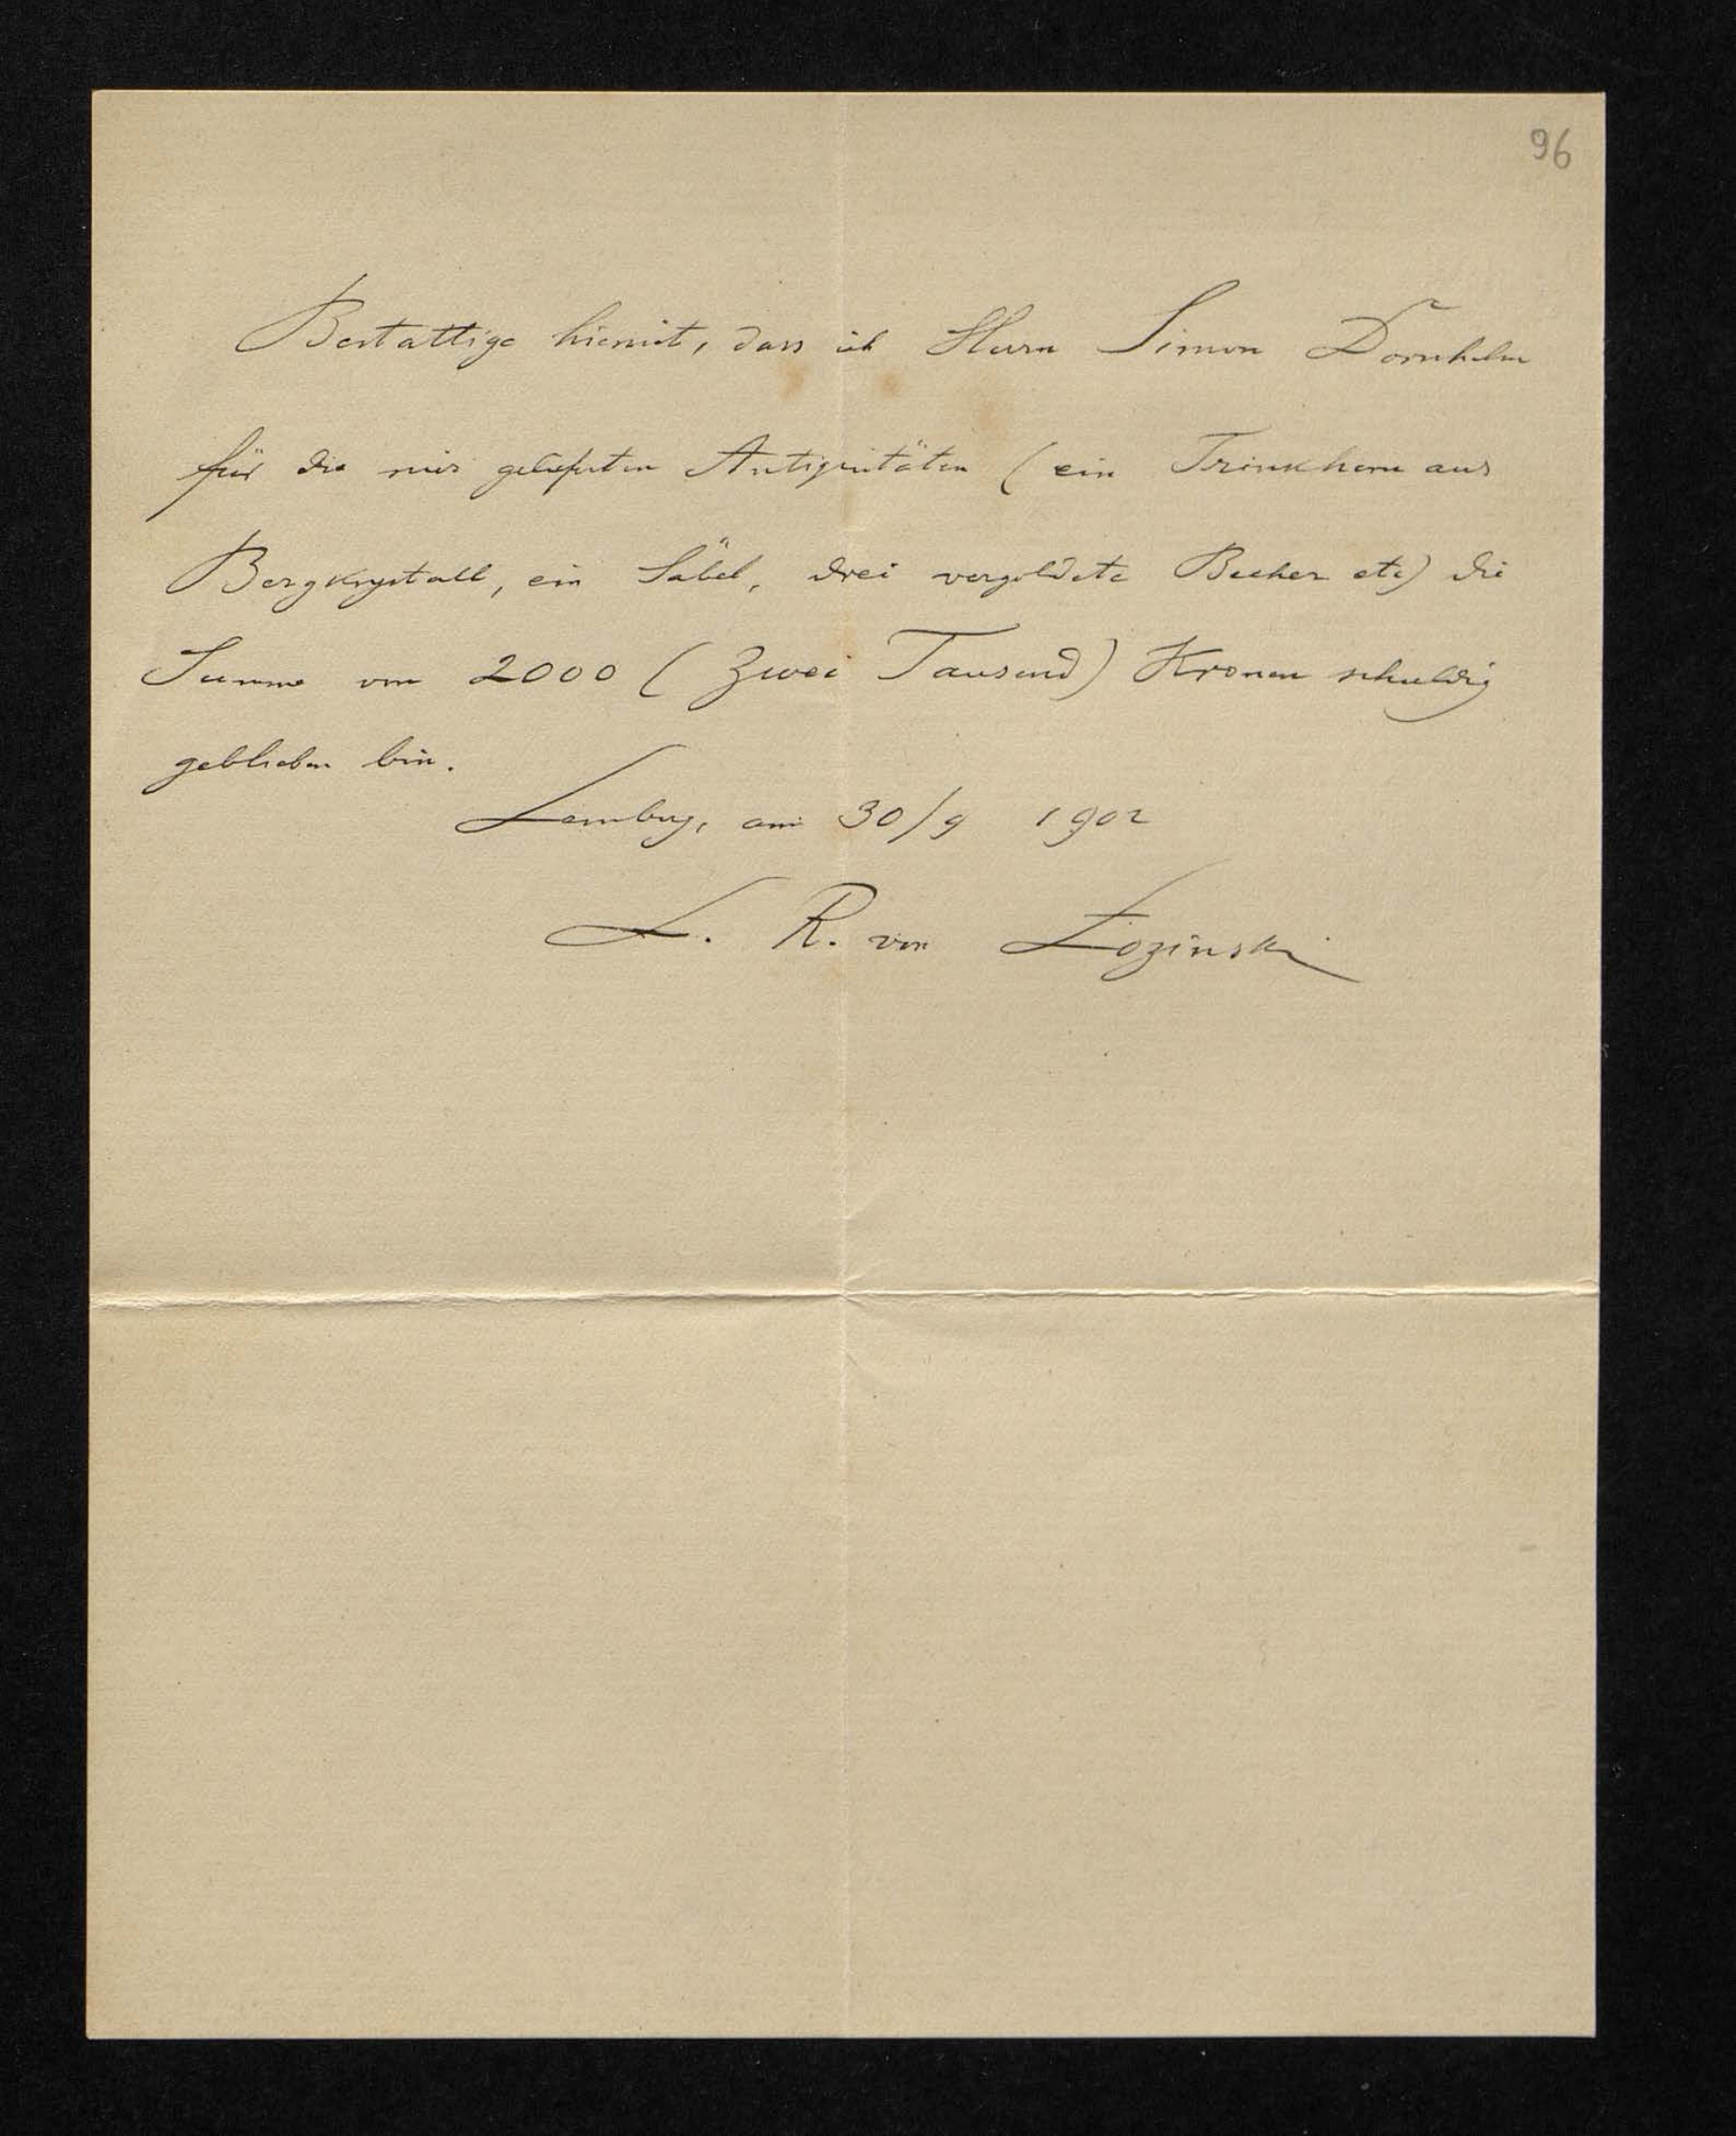 96
Bestattige hiemit, dass ich Herrn Simon Dornhelm
für die mir gelieferten Antiquitäten (ein Trinkhorn aus
Bergkrystall, ein Säbel, drei vergoldete Becher etc) die
Summe von 2000 (Zwei Tausend) Kronen schuldig
geblieben bin.
Lemberg, am 30/9 1902
L. R. von Łozinski